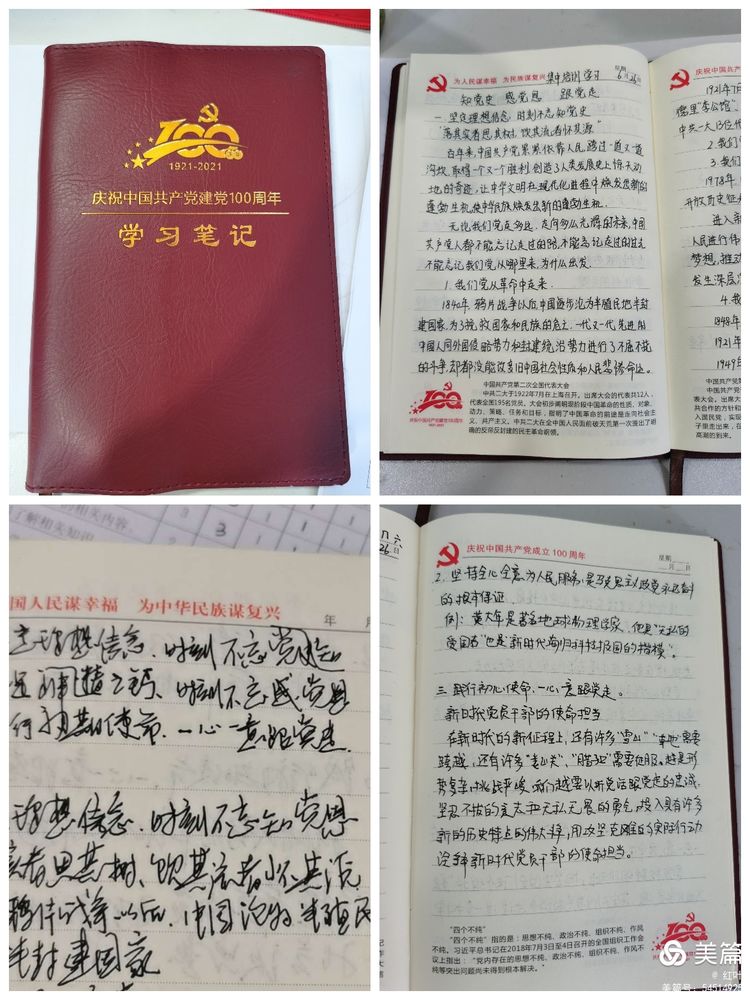 100
1921-2021
庆祝中国共产党建党100周年
学习笔记
为人民谋幸福 为民族谋复兴 集中培训学习 星期
6月26日
知党史 感党恩 跟党走
一、坚定理想信念 时刻不忘知党史
"落其实者思其树，饮其流者怀其源"
百年来，中国共产党紧紧依靠人民，跨过一道又一道
沟坎，取得一个又一个胜利，创造了人类发展史上惊天动
地的奇迹，让中华文明在现代化进程中焕发出新的
蓬勃生机，使中华民族焕发出新的蓬勃生机。
无论我们党走多远，走向多么光辉的未来，中国
共产党人都不能忘记走过的路，不能忘记走过的过去
不能忘记我们党从哪里来，为什么出发。
1、我们党从革命中走来。
1840年，鸦片战争以后中国逐步沦为半殖民地半封
建国家，为了挽救国家和民族的危亡，一代又一代先进的
中国人同外国侵略势力和封建统治势力进行了不屈不挠
的斗争，却都没能改变旧中国社会性质和人民悲惨命运。
中国共产党第二次全国代表大会
中共二大于1922年7月在上海召开。出席大会的代表共12人，
代表全国195名党员。大会初步阐明现阶段中国革命的性质、对象、
动力、策略、任务和目标，指明了中国革命的前途是走向社会主
义、共产主义。中共二大在全中国人民面前破天荒第一次提出了明
确的反帝反封建的民主革命纲领。
100
庆祝中国共产党建党100周年
1921-2021
庆祝中国共产
1921年7月
中共一大13位代
2、我们
3、我们
1978年，
开放历史征
进入新
人民进行伟
梦想，推动
发生深层次
4、我
1848年
1921年
1949年
国人民谋幸福 为中华民族谋复兴 年 月
理想信念、时刻不忘党恩
时刻不忘感党恩
使命、一心一意跟党走
理想信念、时刻不忘知党恩
者思其树、饮其流者怀其源
鸦片战争以后，中国沦为半殖民
半封建国家
庆祝中国共产党成立100周年
星期
月 日
2、坚持全心全意为人民服务，是马克思主义政党永远奋斗
的根本保证。
例：黄大年是著名地球物理学家，他是"无私的
爱国者"也是"新时代海归科技报国的楷模"。
三、践行初心使命，一心一意跟党走。
新时代党员干部的使命担当
在新时代的新征程上，还有许多"雪山""草地"需要
跨越，还有许多"娄山关"、"腊子口"需要征服。越是形
势复杂、挑战严峻，我们越要以听党话跟党走的忠诚、
坚忍不拔的意志和无私无畏的勇气，投入具有许多
新的历史特点的伟大斗争，用攻坚克难的实际行动
诠释新时代党员干部的使命担当。
"四个不纯"
"四个不纯"指的是：思想不纯、政治不纯、组织不纯、作风
不纯。习近平总书记在2018年7月3日至4日召开的全国组织工作会
议上指出："党内存在的思想不纯、政治不纯、组织不纯、作风不
纯等突出问题尚未得到根本解决。"
美篇
@ 红叶
美篇号：54514925